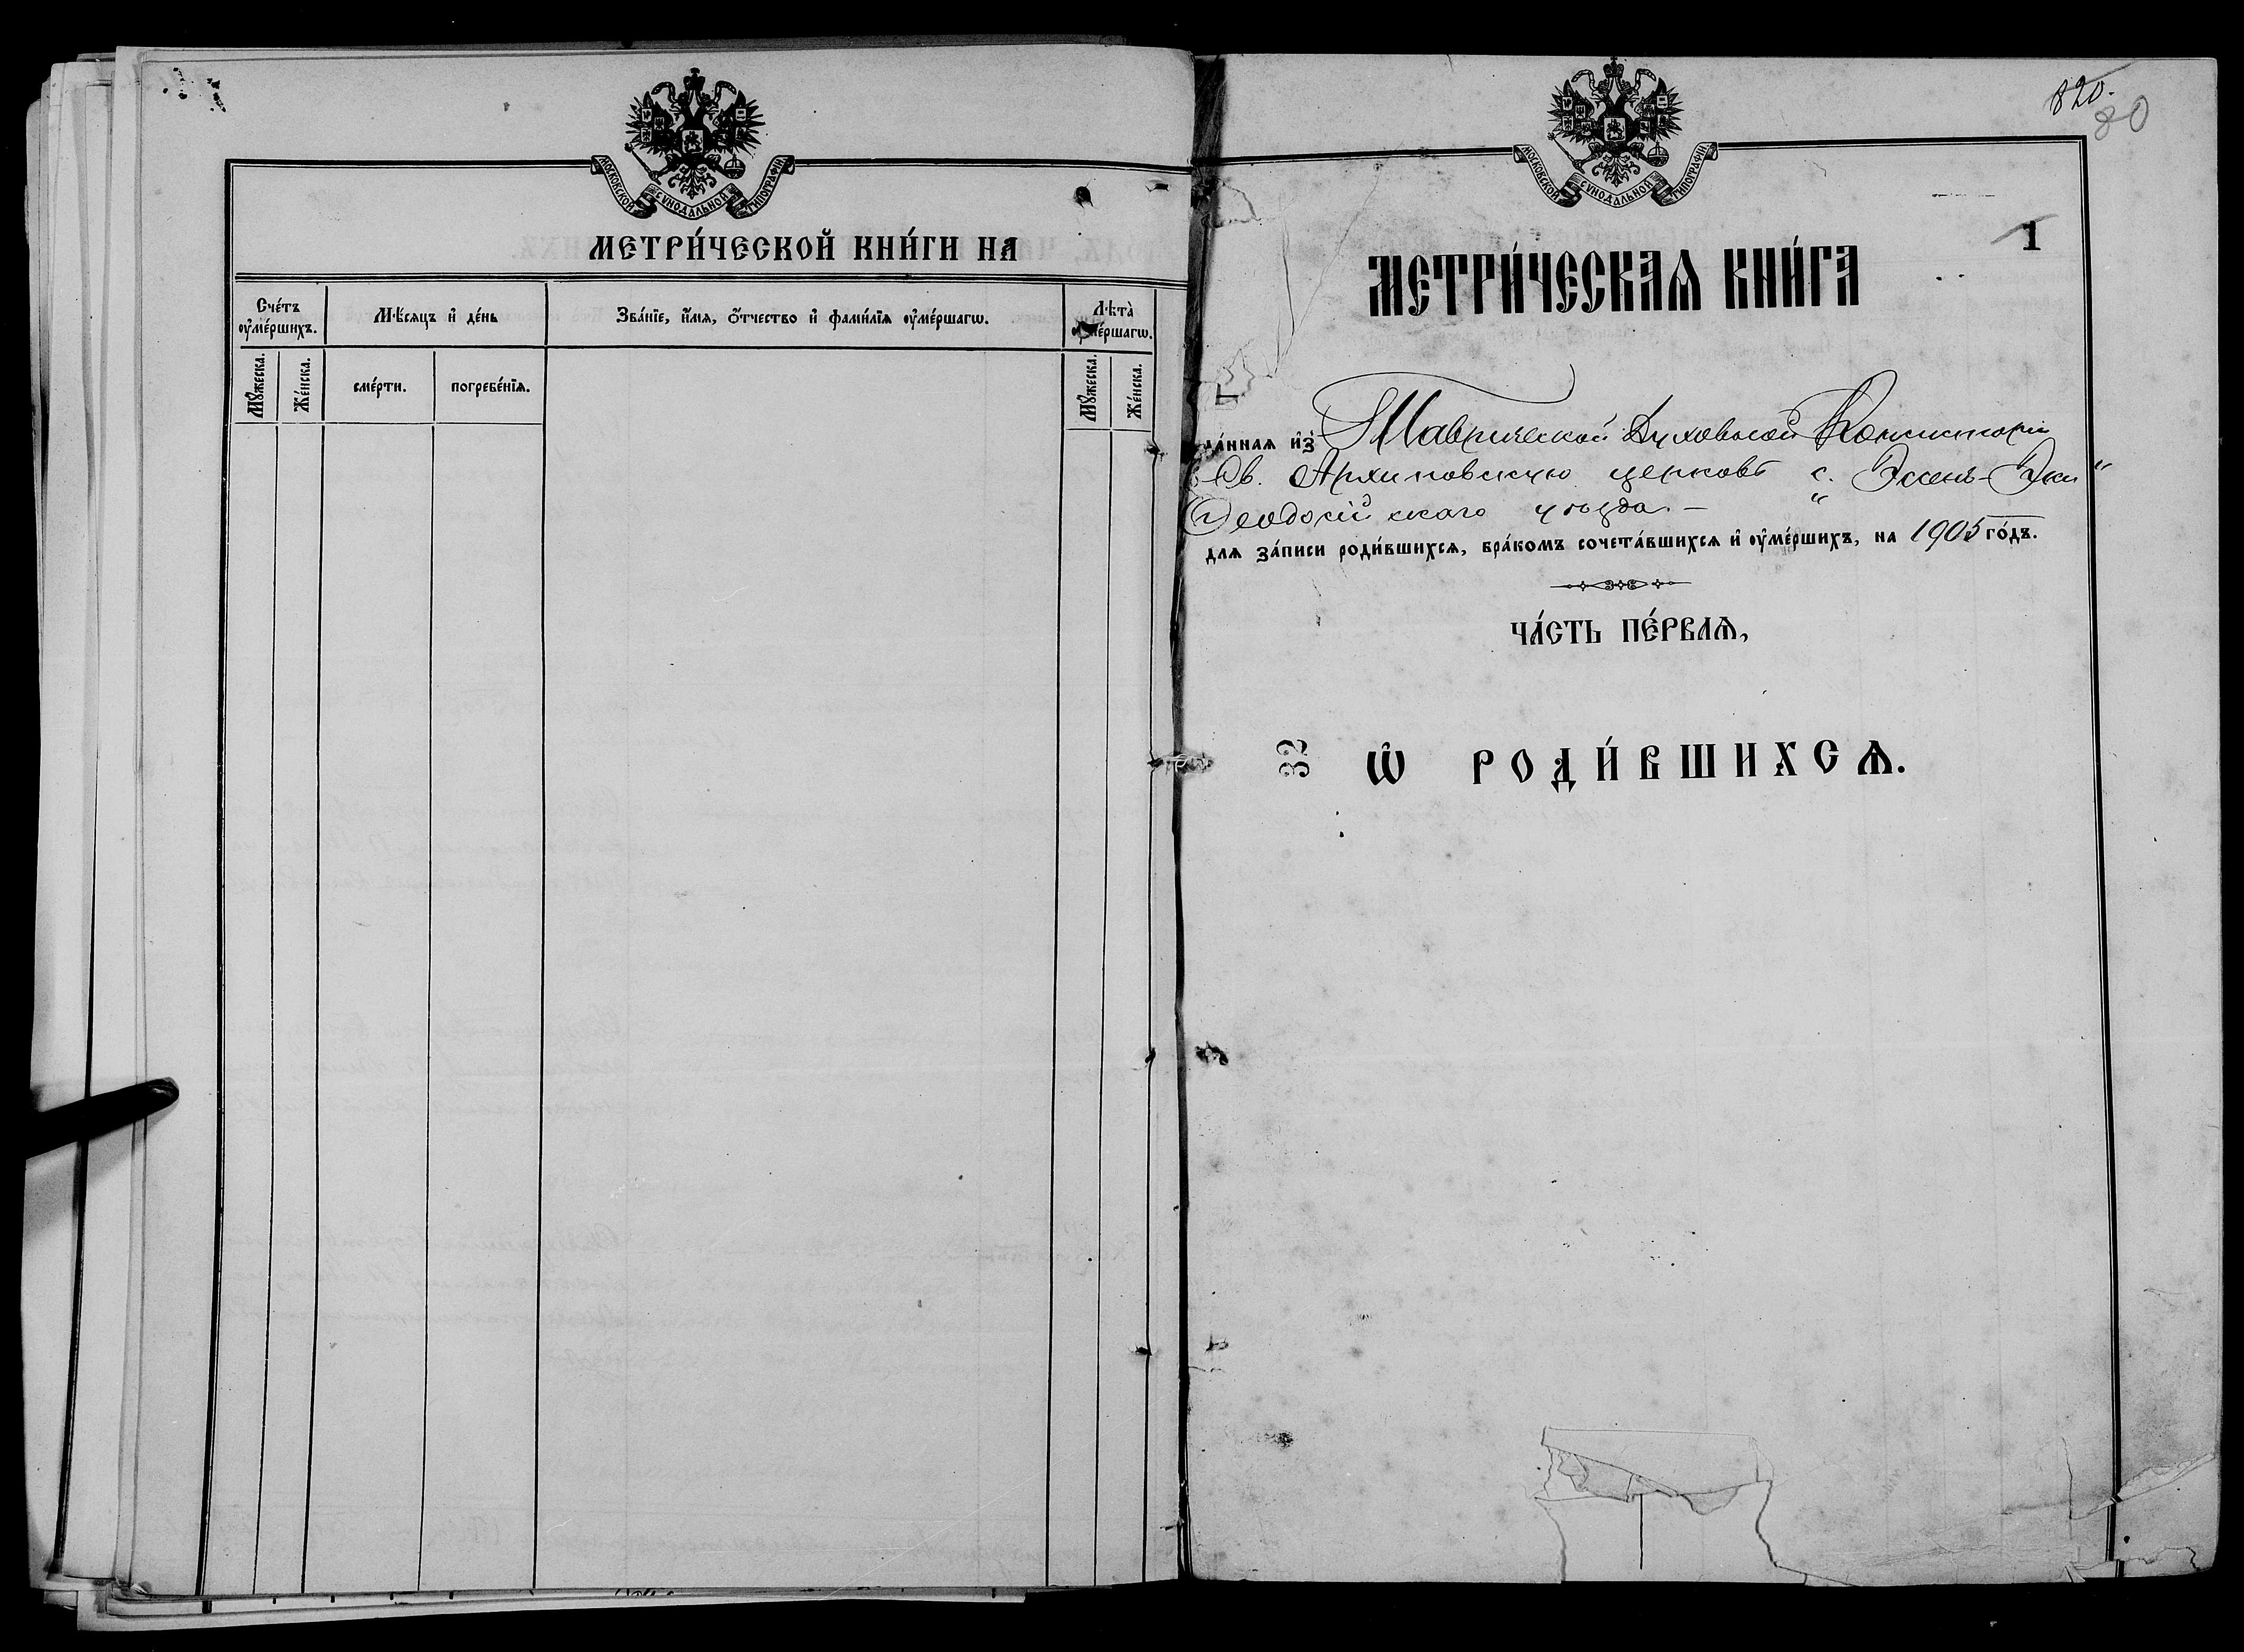 МОСКОВСКОЙ СѴНОДАЛЬНОЙ ТИПОГРАФІИ
МЕТРИ́ЧЕСКОЙ КНИ́ГИ НА
Сче́тъ ᲂу҆ме́ршихъ.
Мѣ́сяцъ и҆ де́нь
Зва́нїе, и҆́мѧ, ѻ҆́тчество и҆ фами́лїѧ ᲂу҆ме́ршагѡ.
Лѣта̀ ᲂу҆ме́ршагѡ.
Мꙋ́жеска.
Же́нска.
сме́рти.
погребе́нїѧ.
Мꙋ́жеска.
Же́нска.
820.
80
МОСКОВСКОЙ СѴНОДАЛЬНОЙ ТИПОГРАФІИ
1
МЕТРИ́ЧЕСКАѦ КНИ́ГА
да́ннаѧ и҆з̾ Таврической Духовной Консисторіи
въ Св. Архиповскую церковь с. „Эссенъ-Эки"
Ѳеодосійскаго уѣзда. —
длѧ за́писи роди́вшихсѧ, бра́комъ сочета́вшихсѧ и҆ ᲂу҆ме́ршихъ, на 1905 го́дъ.
ЧА́СТЬ ПЕ́РВАѦ,
32
Ѡ҆ РОДИ́ВШИХСѦ.